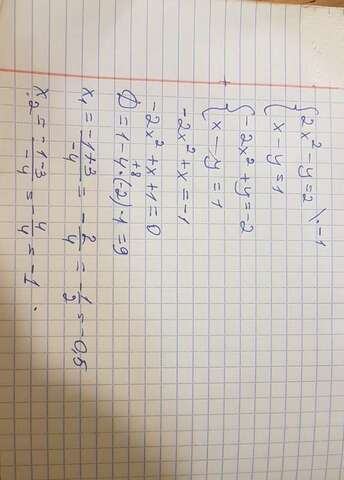 { 2x² - y = 2 \·-1
{ x - y = 1
+ { -2x² + y = -2
{ x - y = 1
-2x² + x = -1
-2x² + x + 1 = 0
+8
D = 1 - 4·(-2)·1 = 9
x₁ = \frac{-1+3}{-4} = -\frac{2}{4} = -\frac{1}{2} = -0,5
x₂ = \frac{-1-3}{-4} = -\frac{4}{4} = -1.